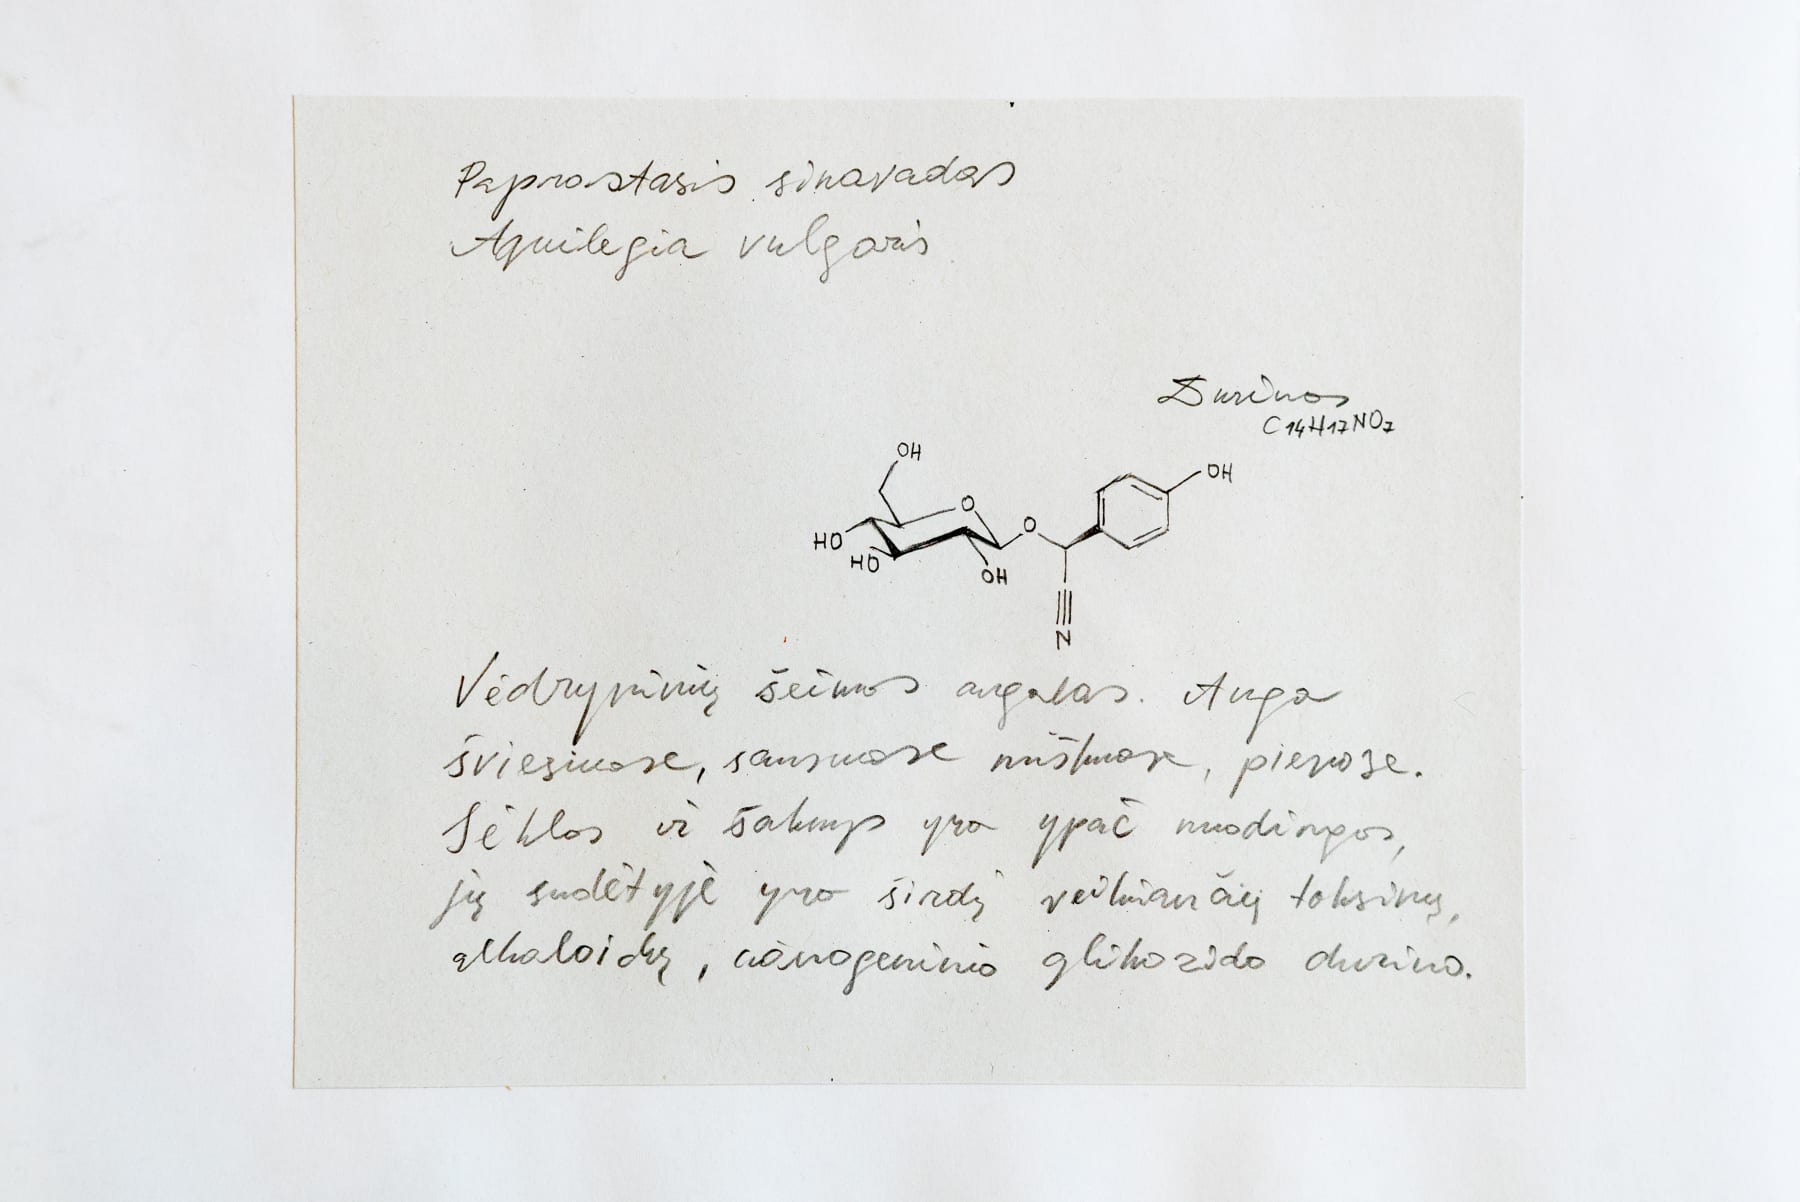 Paprastasis sinavadas
Aquilegia vulgaris
Durinas
C14H17NO7
OH
OH
O
O
HO
HO
OH
N
Vėdryninių šeimos augalas. Auga
šviesiuose, sausuose miškuose, pievose.
Sėklos ir šaknys yra ypač nuodingos,
jų sudėtyje yra širdį veikiančių toksinų,
alkaloidų, cianogeninio glikozido durino.